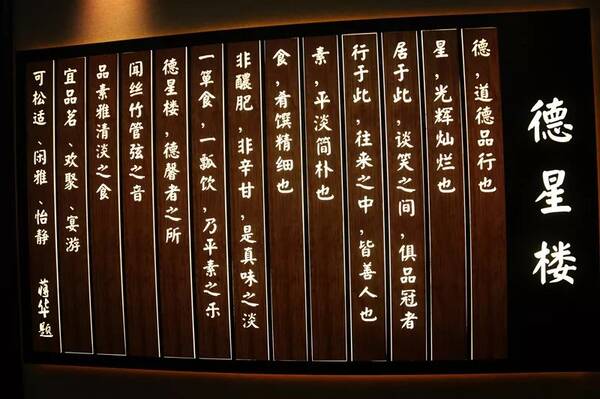 德星楼
德，道德品行也
星，光辉灿烂也
居于此，谈笑之间，俱品冠者
行于此，往来之中，皆善人也
素，平淡简朴也
食，肴馔精细也
非醲肥，非辛甘，是真味之淡
一箪食，一瓢饮，乃平素之乐
德星楼，德馨者之所
闻丝竹管弦之音
品素雅清淡之食
宜品茗、欢聚、宴游
可松适、闲雅、怡静 蒋华题